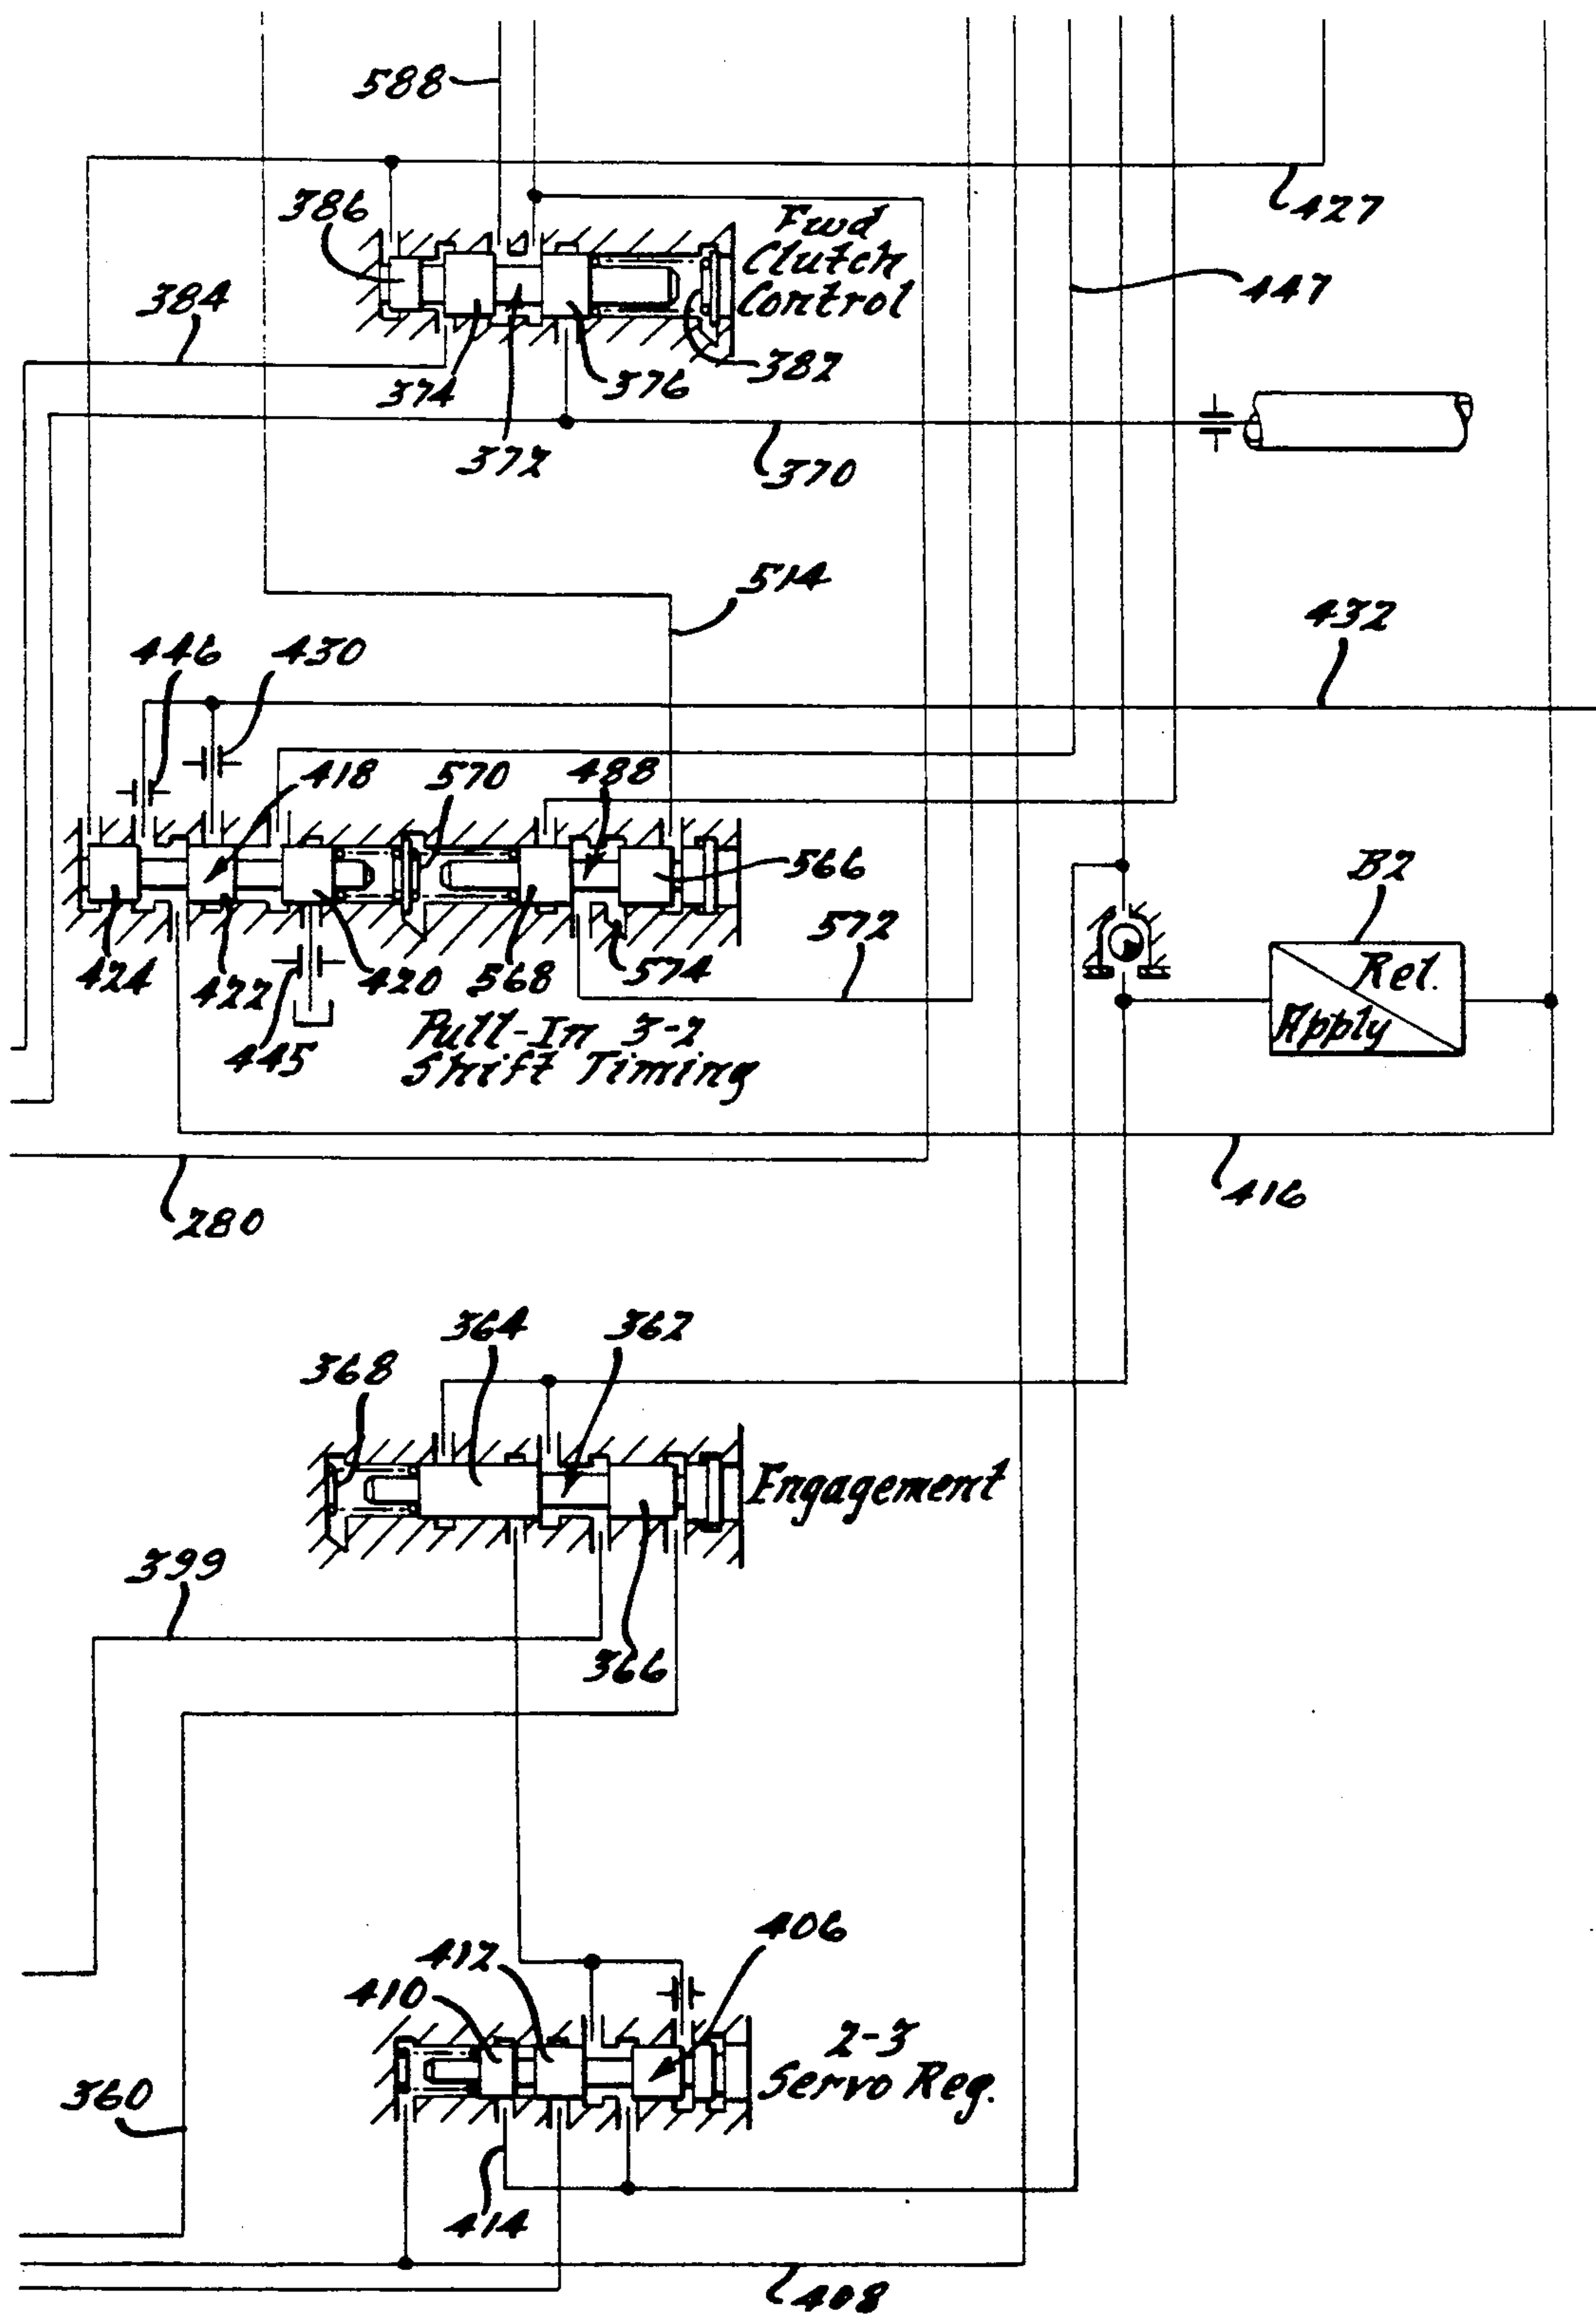 588
427
386
Fwd
Clutch
Control
447
384
374
376
382
372
370
514
432
446
430
418
570
488
566
B2
Rel.
Apply
572
424
422
420
568
574
445
Pull-In 3-2
Shift Timing
416
280
364
362
368
Engagement
399
366
406
412
410
2-3
Servo Reg.
360
414
408